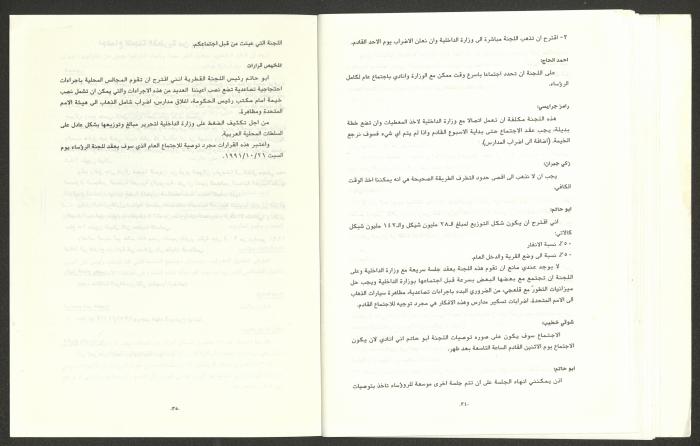 ٢- اقترح ان تذهب اللجنة مباشرة الى وزارة الداخلية وان نعلن الاضراب يوم الاحد القادم.
احمد الحاج:
على اللجنة ان تحدد اجتماعا باسرع وقت ممكن مع الوزارة وانادي باجتماع عام لكامل
الرؤساء.
رامز جرايسي:
هذه اللجنة مكلفة ان تعمل اتصالا مع وزارة الداخلية لاخذ المعطيات وان تضع خطة
بديلة، يجب عقد الاجتماع حتى بداية الاسبوع القادم واذا لم يتم اي شيء فسوف نرجع
الخيمة. (اضافة الى اضراب المدارس).
زكي جمران:
يجب ان لا نذهب الى اقصى حدود التطرف الطريقة الصحيحة هي انه يمكننا اخذ الوقت
الكافي.
ابو حاتم:
اني اقترح ان يكون شكل التوزيع لمبلغ الـ٢٨ مليون شيكل والـ١٤٢ مليون شيكل
كالاتي:
٥٠٪ نسبة الانفار
٥٠٪ نسبة الى وضع القرية والدخل العام.
لا يوجد عندي مانع ان تقوم هذه اللجنة بعقد جلسة سريعة مع وزارة الداخلية وعلى
اللجنة ان تجتمع مع بعضها البعض بسرعة قبل اجتماعها بوزارة الداخلية ويجب حل
ميزانيات التطور مع قلعجي، من الضروري البدء باجراءات تصاعدية، مظاهرة سيارات الذهاب
الى الامم المتحدة، اضرابات تسكير مدارس وهذه الافكار هي مجرد توجيه للاجتماع القادم.
شوقي خطيب:
الاجتماع سوف يكون على صوره توصيات اللجنة ابو حاتم اني انادي لان يكون
الاجتماع يوم الاثنين القادم الساعة التاسعة بعد ظهر.
ابو حاتم:
اذن يمكنني انهاء الجلسة على ان تتم جلسة اخرى موسعة للرؤساء تاخذ بتوصيات
٣٤٠.
اللجنة التي عينت من قبل اجتماعكم.
تلخيص قرارات
ابو حاتم رئيس اللجنة القطرية انني اقترح ان تقوم المجالس المحلية باجراءات
احتجاجية تصاعدية تضع نصب اعيننا العديد من هذه الاجراءات والتي يمكن ان تشمل نصب
خيمة امام مكتب رئيس الحكومة، اغلاق مدارس، اضراب شامل الذهاب الى هيئة الامم
المتحدة ومظاهرة.
من اجل تكثيف الضغط على وزارة الداخلية لتحرير مبالغ وتوزيعها بشكل عادل على
السلطات المحلية العربية.
واعتبر هذه القرارات مجرد توصية للاجتماع العام الذي سوف يعقد للجنة الرؤساء يوم
السبت ١٩٩١/١٠/٢٦.